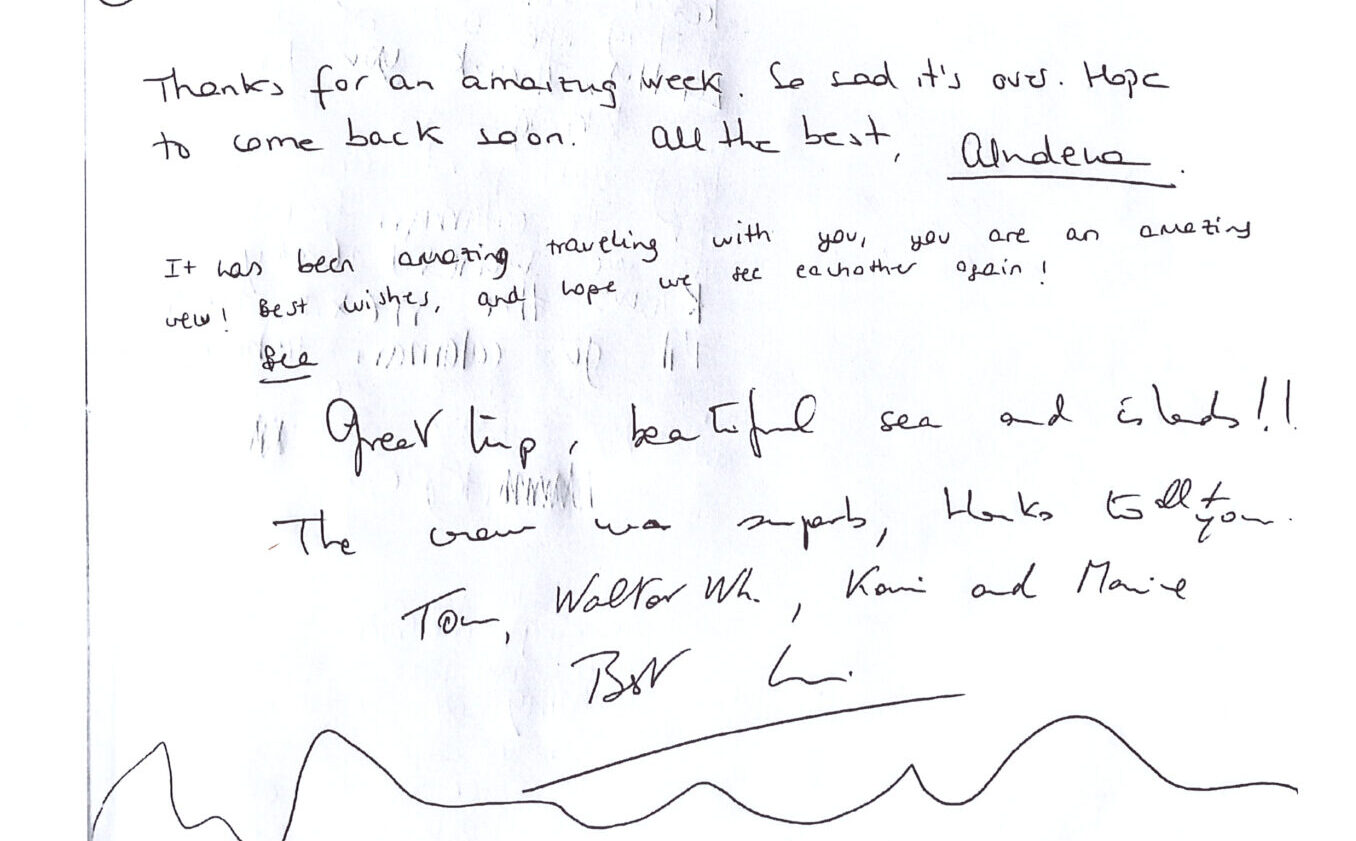 Thanks for an amaizng week. So sad it's over. Hope
to come back soon. All the best, Almdena.
It has been amazing traveling with you, you are an amazing
crew! Best wishes, and hope we see eachother again!
Great trip, beatiful sea and islands!!
The crew was superb, thanks to all of you.
Tom, Walter Wh., and
Best